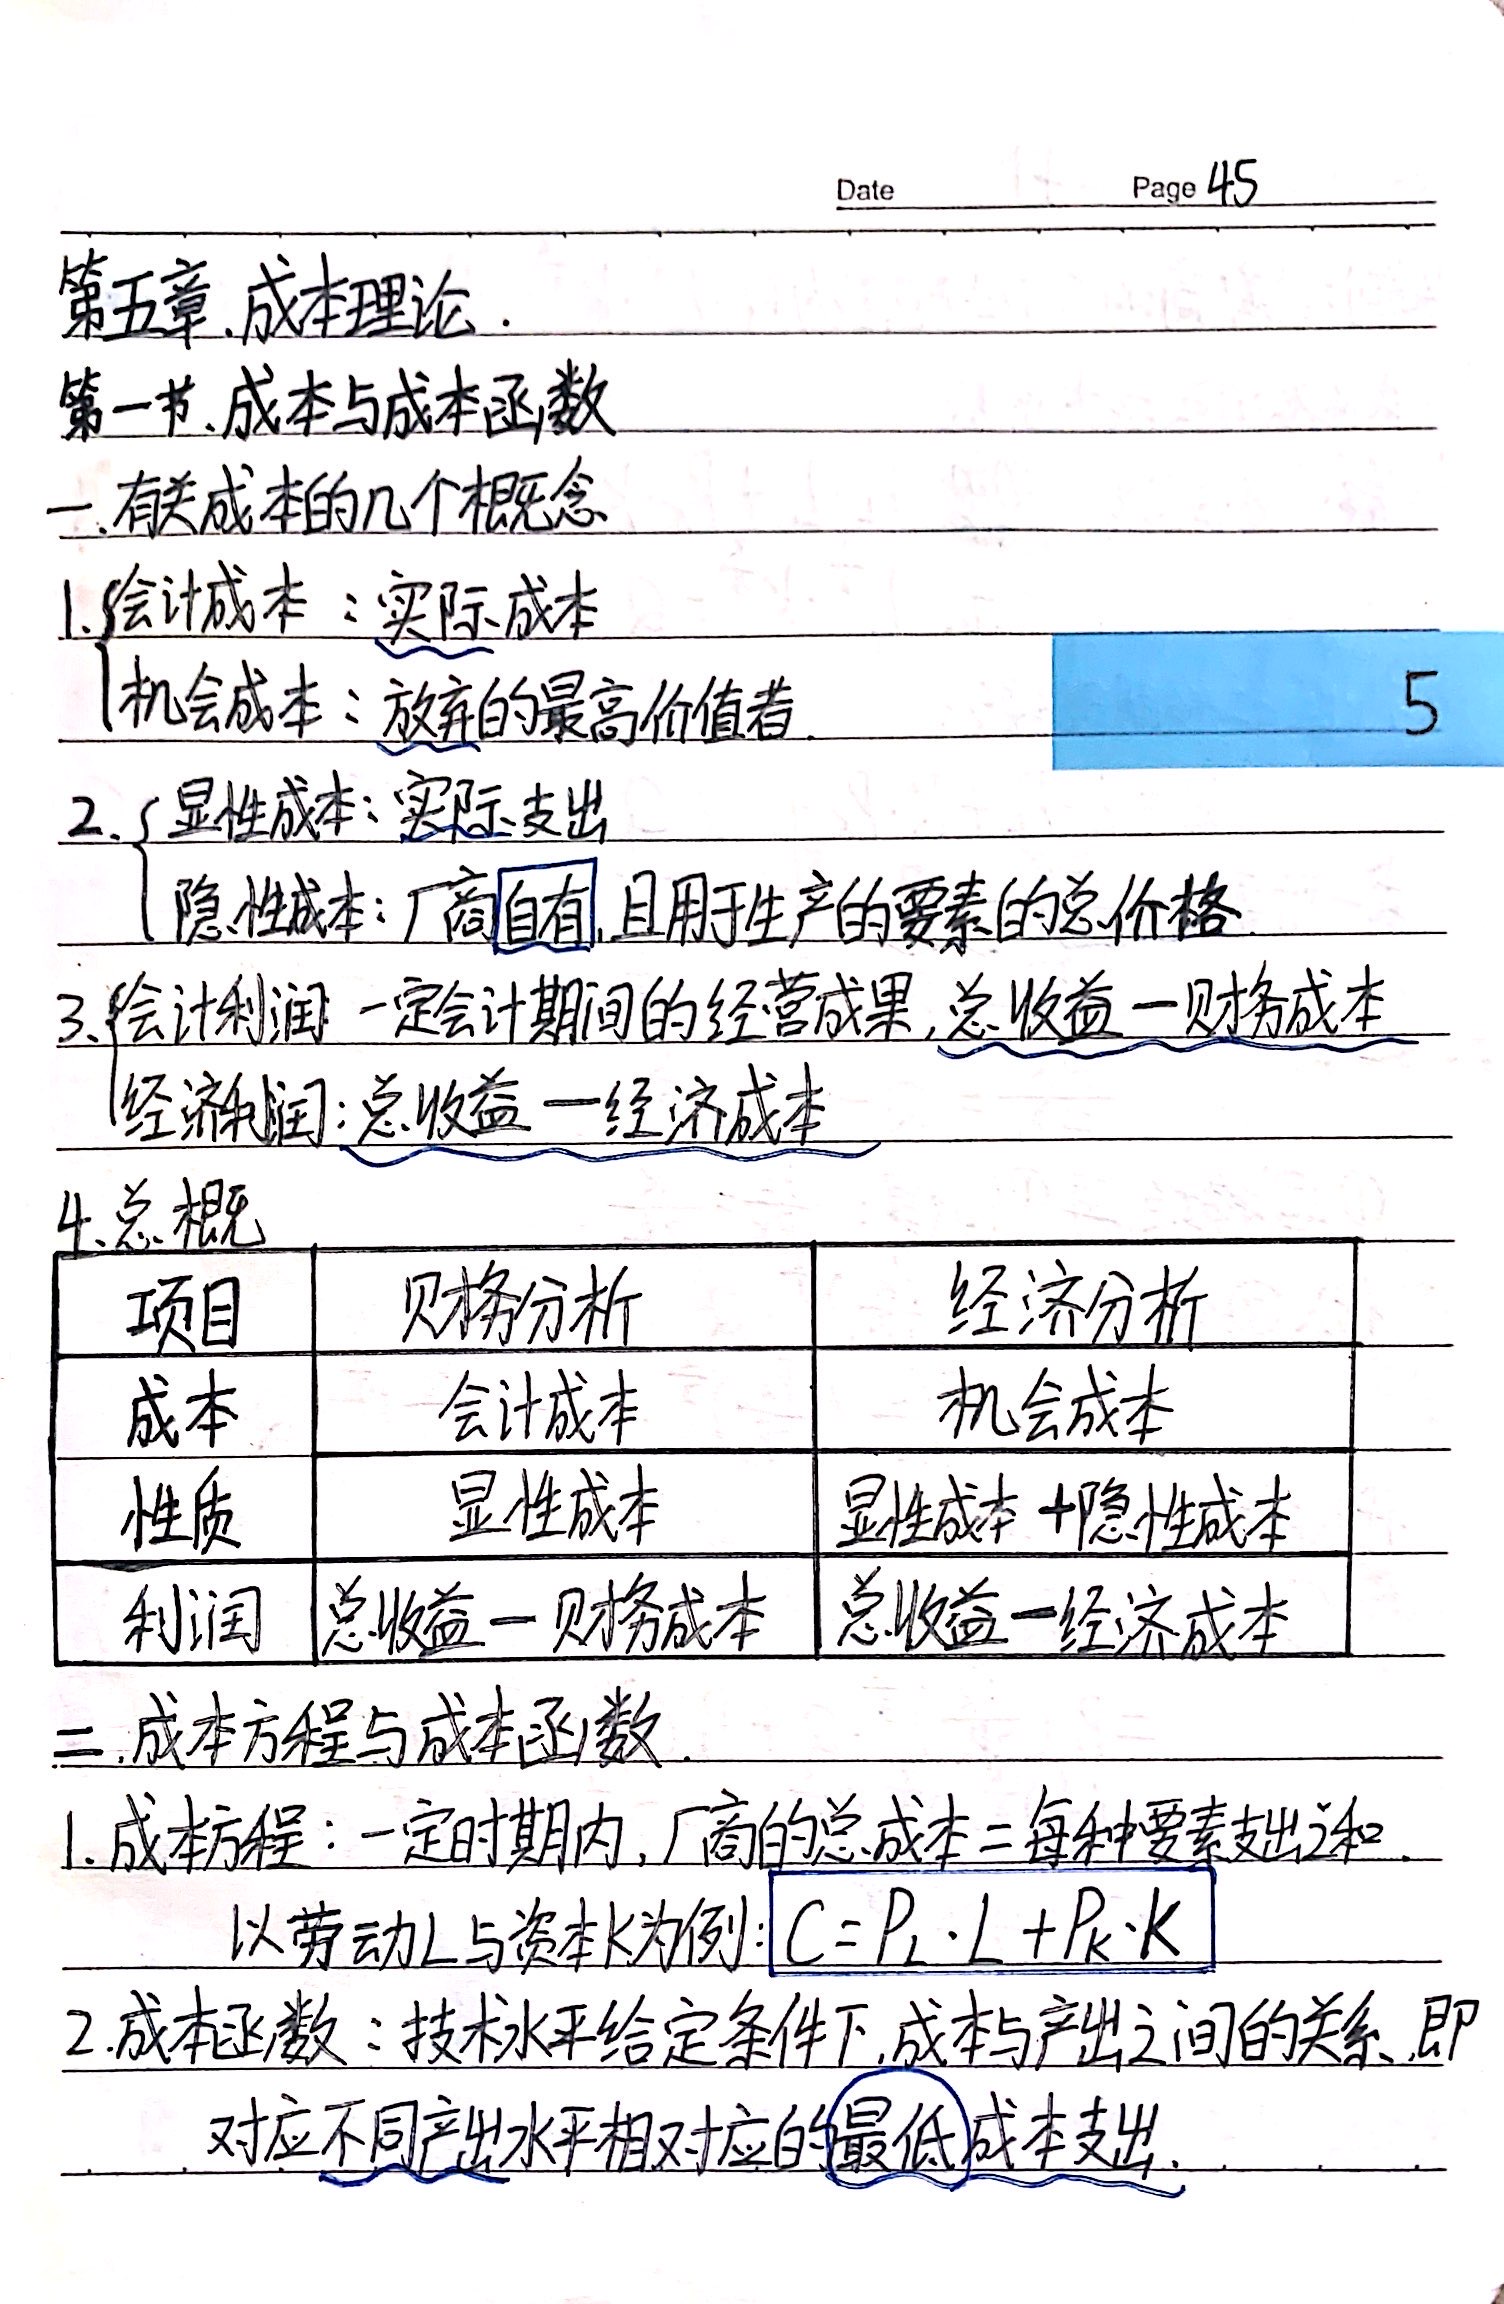 Date Page 45
第五章、成本理论.
第一节、成本与成本函数
一、有关成本的几个概念
1、会计成本：实际成本
机会成本：放弃的最高价值者.
5
2、显性成本：实际支出
隐性成本：厂商自有,且用于生产的要素的总价格.
3、会计利润:一定会计期间的经营成果,总收益—财务成本
经济利润:总收益—经济成本
4、总概
项目 财务分析 经济分析
成本 会计成本 机会成本
性质 显性成本 显性成本+隐性成本
利润 总收益—财务成本 总收益—经济成本
二、成本方程与成本函数.
1.成本方程：一定时期内,厂商的总成本=每种要素支出之和.
以劳动L与资本K为例: C=PL·L+PK·K
2.成本函数：技术水平给定条件下,成本与产出之间的关系,即
对应不同产出水平相对应的最低成本支出.